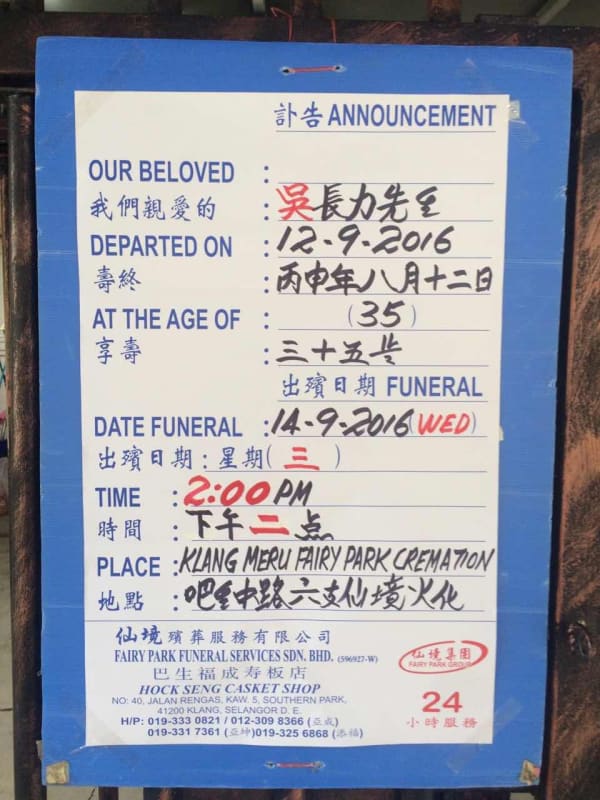 訃告 ANNOUNCEMENT
OUR BELOVED :
我們親愛的 : 吳長力先生
DEPARTED ON : 12-9-2016
壽終 : 丙申年八月十二日
AT THE AGE OF : (35)
享壽 : 三十五岁
出殯日期 FUNERAL
DATE FUNERAL : 14-9-2016 (WED)
出殯日期 : 星期( 三 )
TIME : 2:00 PM
時間 : 下午二点
PLACE : KLANG MERU FAIRY PARK CREMATION
地點 : 吧生中路六支仙境火化
仙境殯葬服務有限公司
FAIRY PARK FUNERAL SERVICES SDN. BHD. (596927-W)
巴生福成寿板店
HOCK SENG CASKET SHOP
NO: 40, JALAN RENGAS, KAW. 5, SOUTHERN PARK,
41200 KLANG, SELANGOR D. E.
H/P: 019-333 0821 / 012-309 8366 (亞成)
019-331 7361 (亞坤) 019-325 6868 (添福)
仙境集團
FAIRY PARK GROUP
24
小時服務